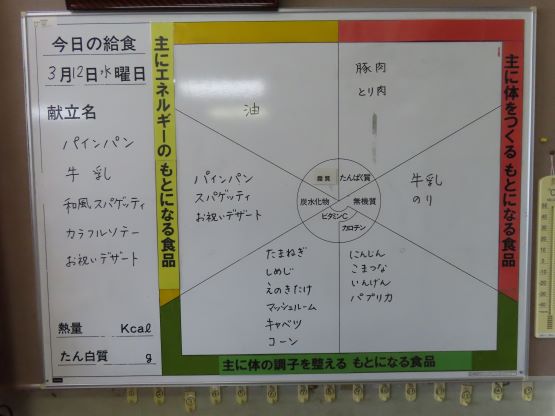 今日の給食
3月12日水曜日
献立名
パインパン
牛乳
和風スパゲッティ
カラフルソテー
お祝いデザート
熱量 Kcal
たん白質 g
主にエネルギーのもとになる食品
油
パインパン
スパゲッティ
お祝いデザート
豚肉
とり肉
牛乳
のり
脂質
たんぱく質
炭水化物
無機質
ビタミンC
カロテン
たまねぎ
しめじ
えのきたけ
マッシュルーム
キャベツ
コーン
にんじん
こまつな
いんげん
パプリカ
主に体をつくるもとになる食品
主に体の調子を整える もとになる食品